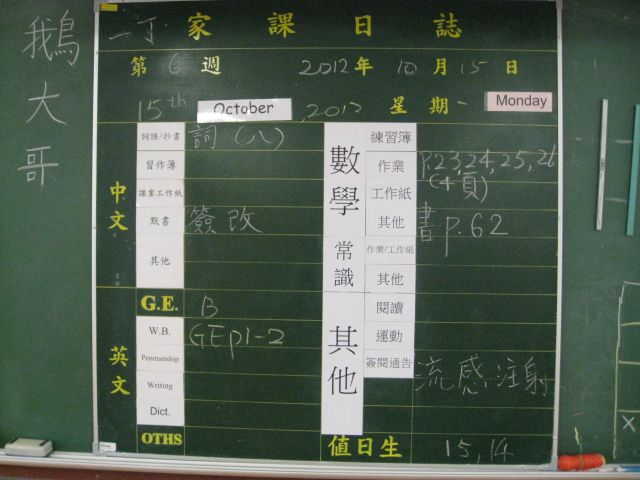 鵝大哥
一丁 家課日誌
第 6 週 2012 年 10 月 15 日
15th October, 2012 星期一 Monday
中文
詞語/抄書 詞(八)
習作簿
課業工作紙
默書 簽改
其他
英文
G.E. B
W.B. GE p1-2
Penmanship
Writing
Dict.
OTHS
數學
練習簿
作業 p.23,24,25,26
工作紙 (4頁)
其他 書 p.62
常識
作業/工作紙
其他
其他
閱讀
運動
簽閱通告 流感注射
值日生 15,14